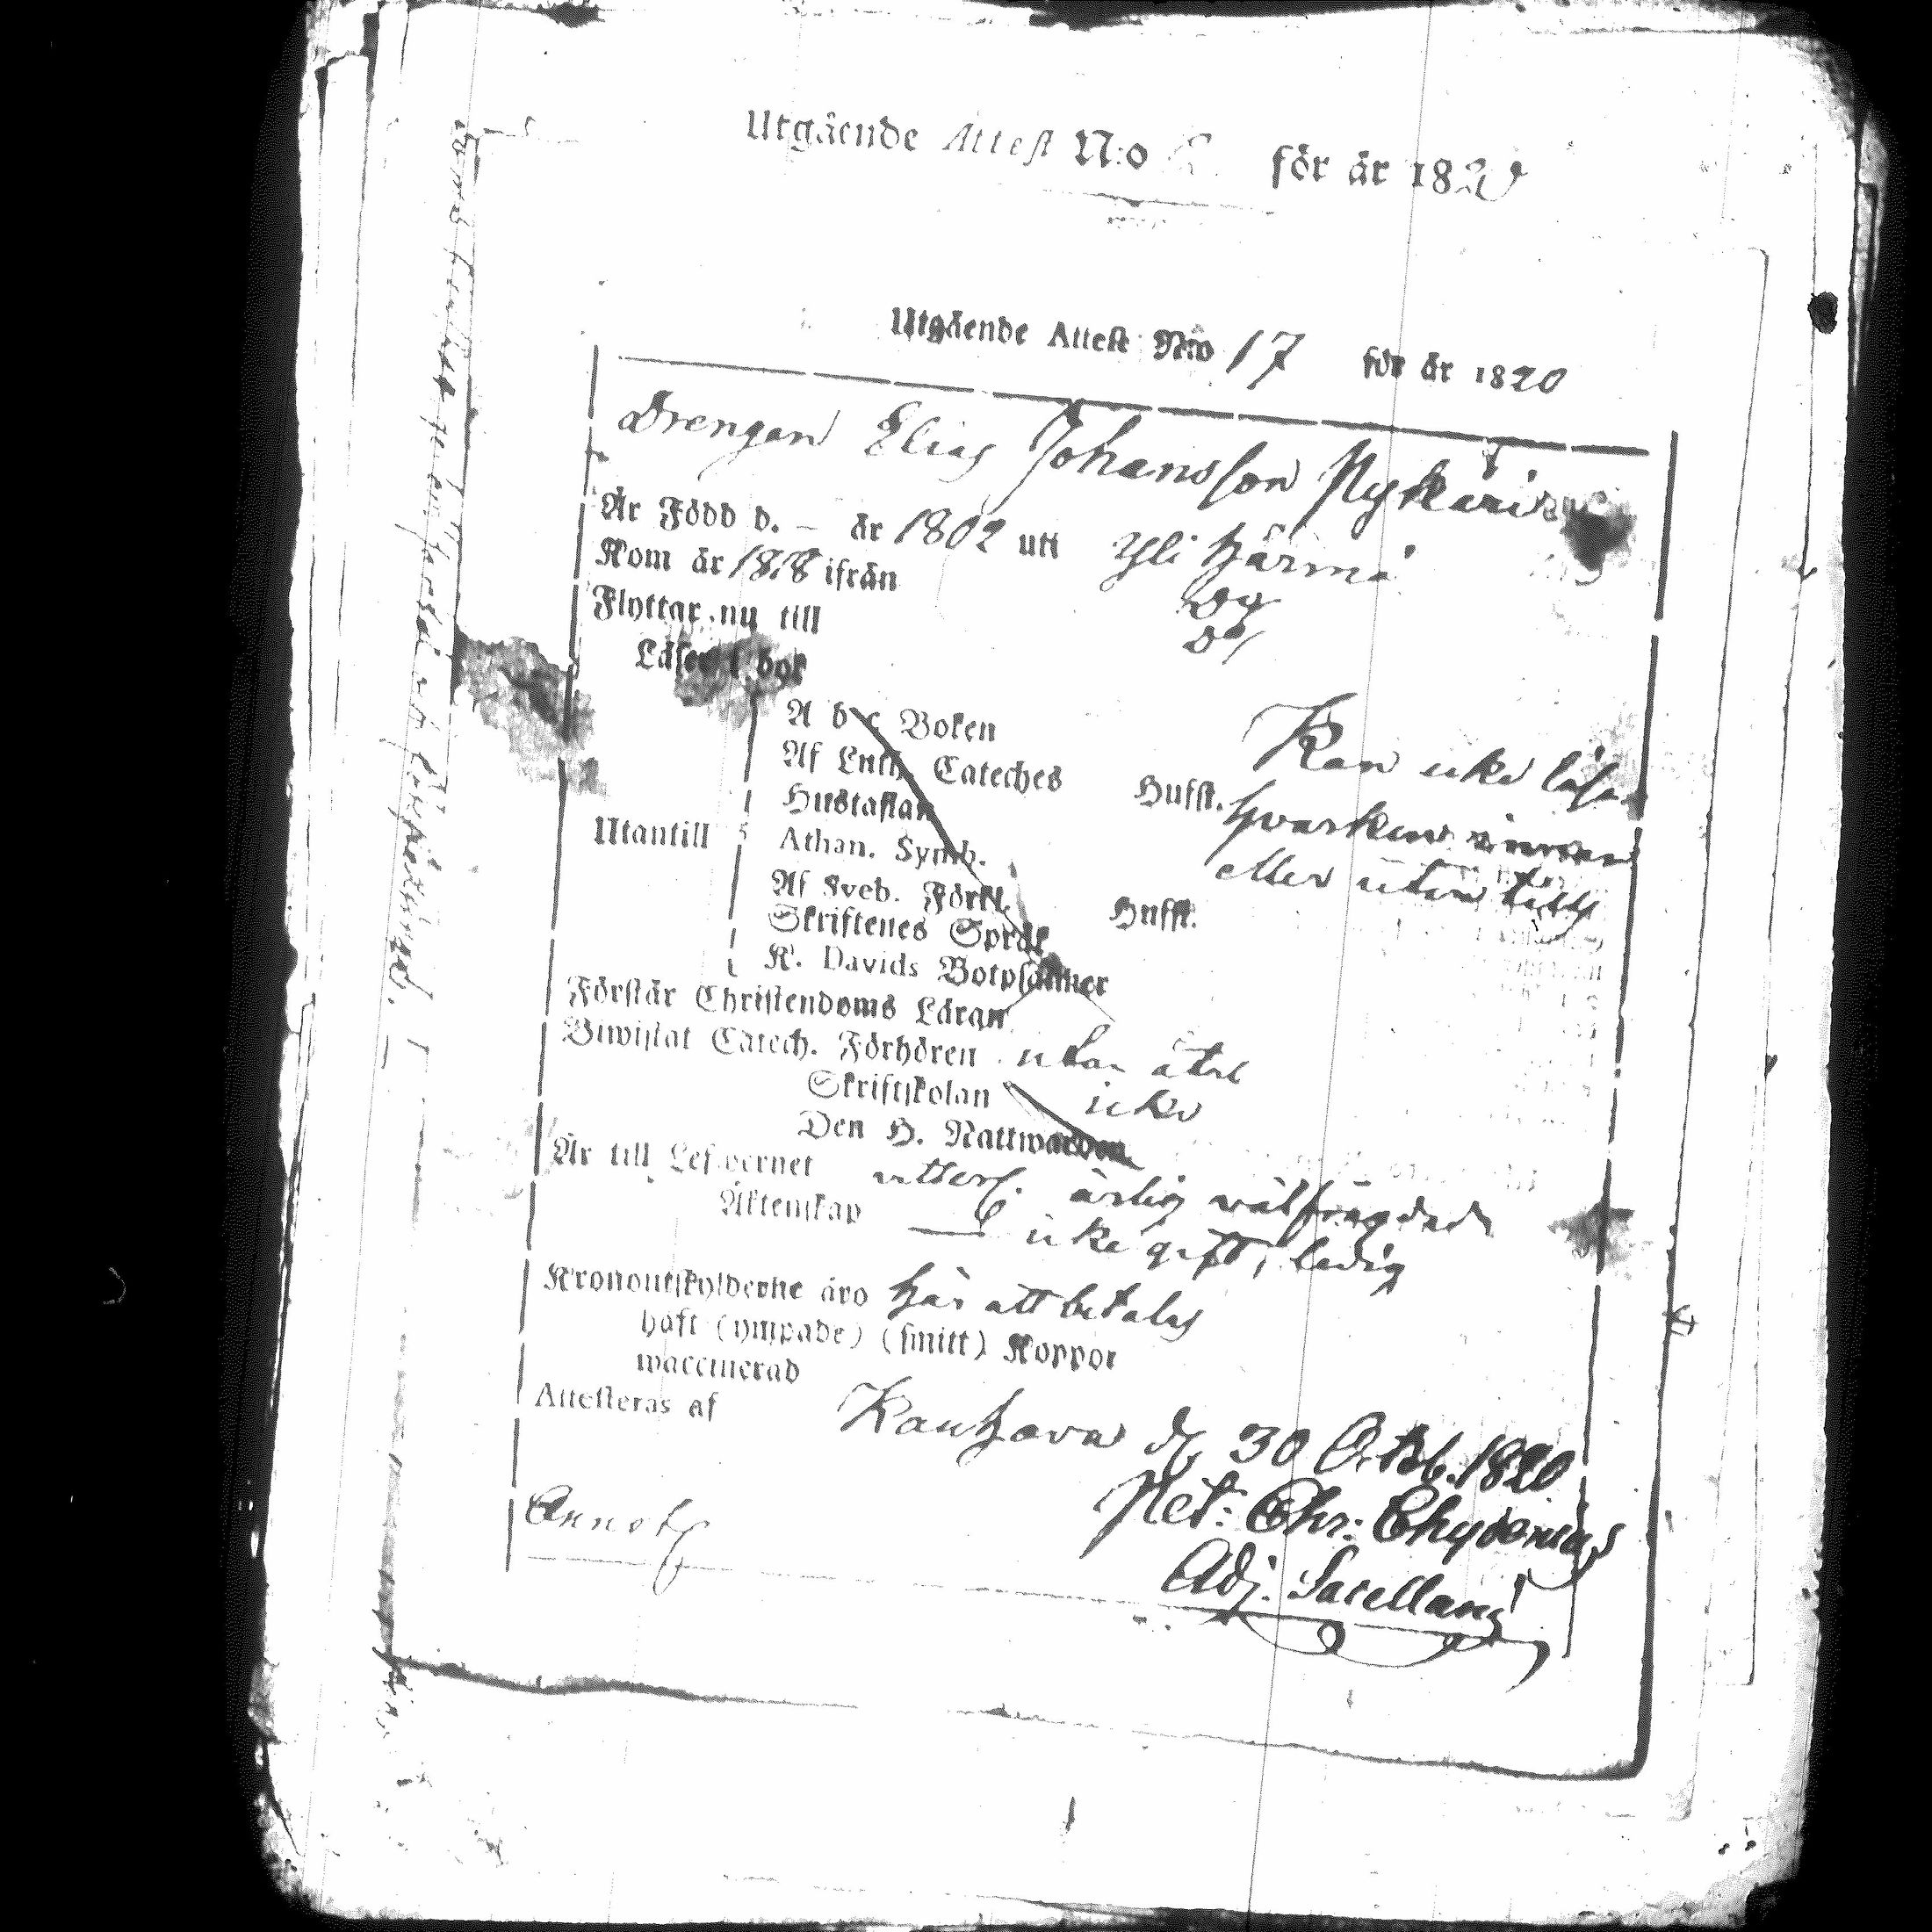 Utgående Attest N:o för år 1820
Utgående Attest N:o 17 för år 1820
Drengen Elias Johansson Nykäris
Är Född d. – år 1802 uti Yli Härmä
Kom år 1818 ifrån Do
Flyttar nu till Do
Läser i bok
A b c Boken
Kan icke läsa
Af Luth. Cateches Husst.
hvarken innan
Hustaflan
eller utan till
Utantill
Athan. Symb.
Af Sveb. Förkl. Husst.
Skriftenes Språk
K. Davids Botpsalmer
Förstår Christendoms Läran
Biwistat Catech. Förhören utan
Skriftskolan icke
Den H. Nattwarden
Är till Lefwernet ärlig välfrägdad
Äktenskap — icke gift, ledig
Kronoutskylderne äro här att betalas
haft (ympade) (smitt) Koppor
waccinerad
Attesteras af Kauhava d. 30 Octob. 1820
Chr: Chydenius
Adj. Sacellans